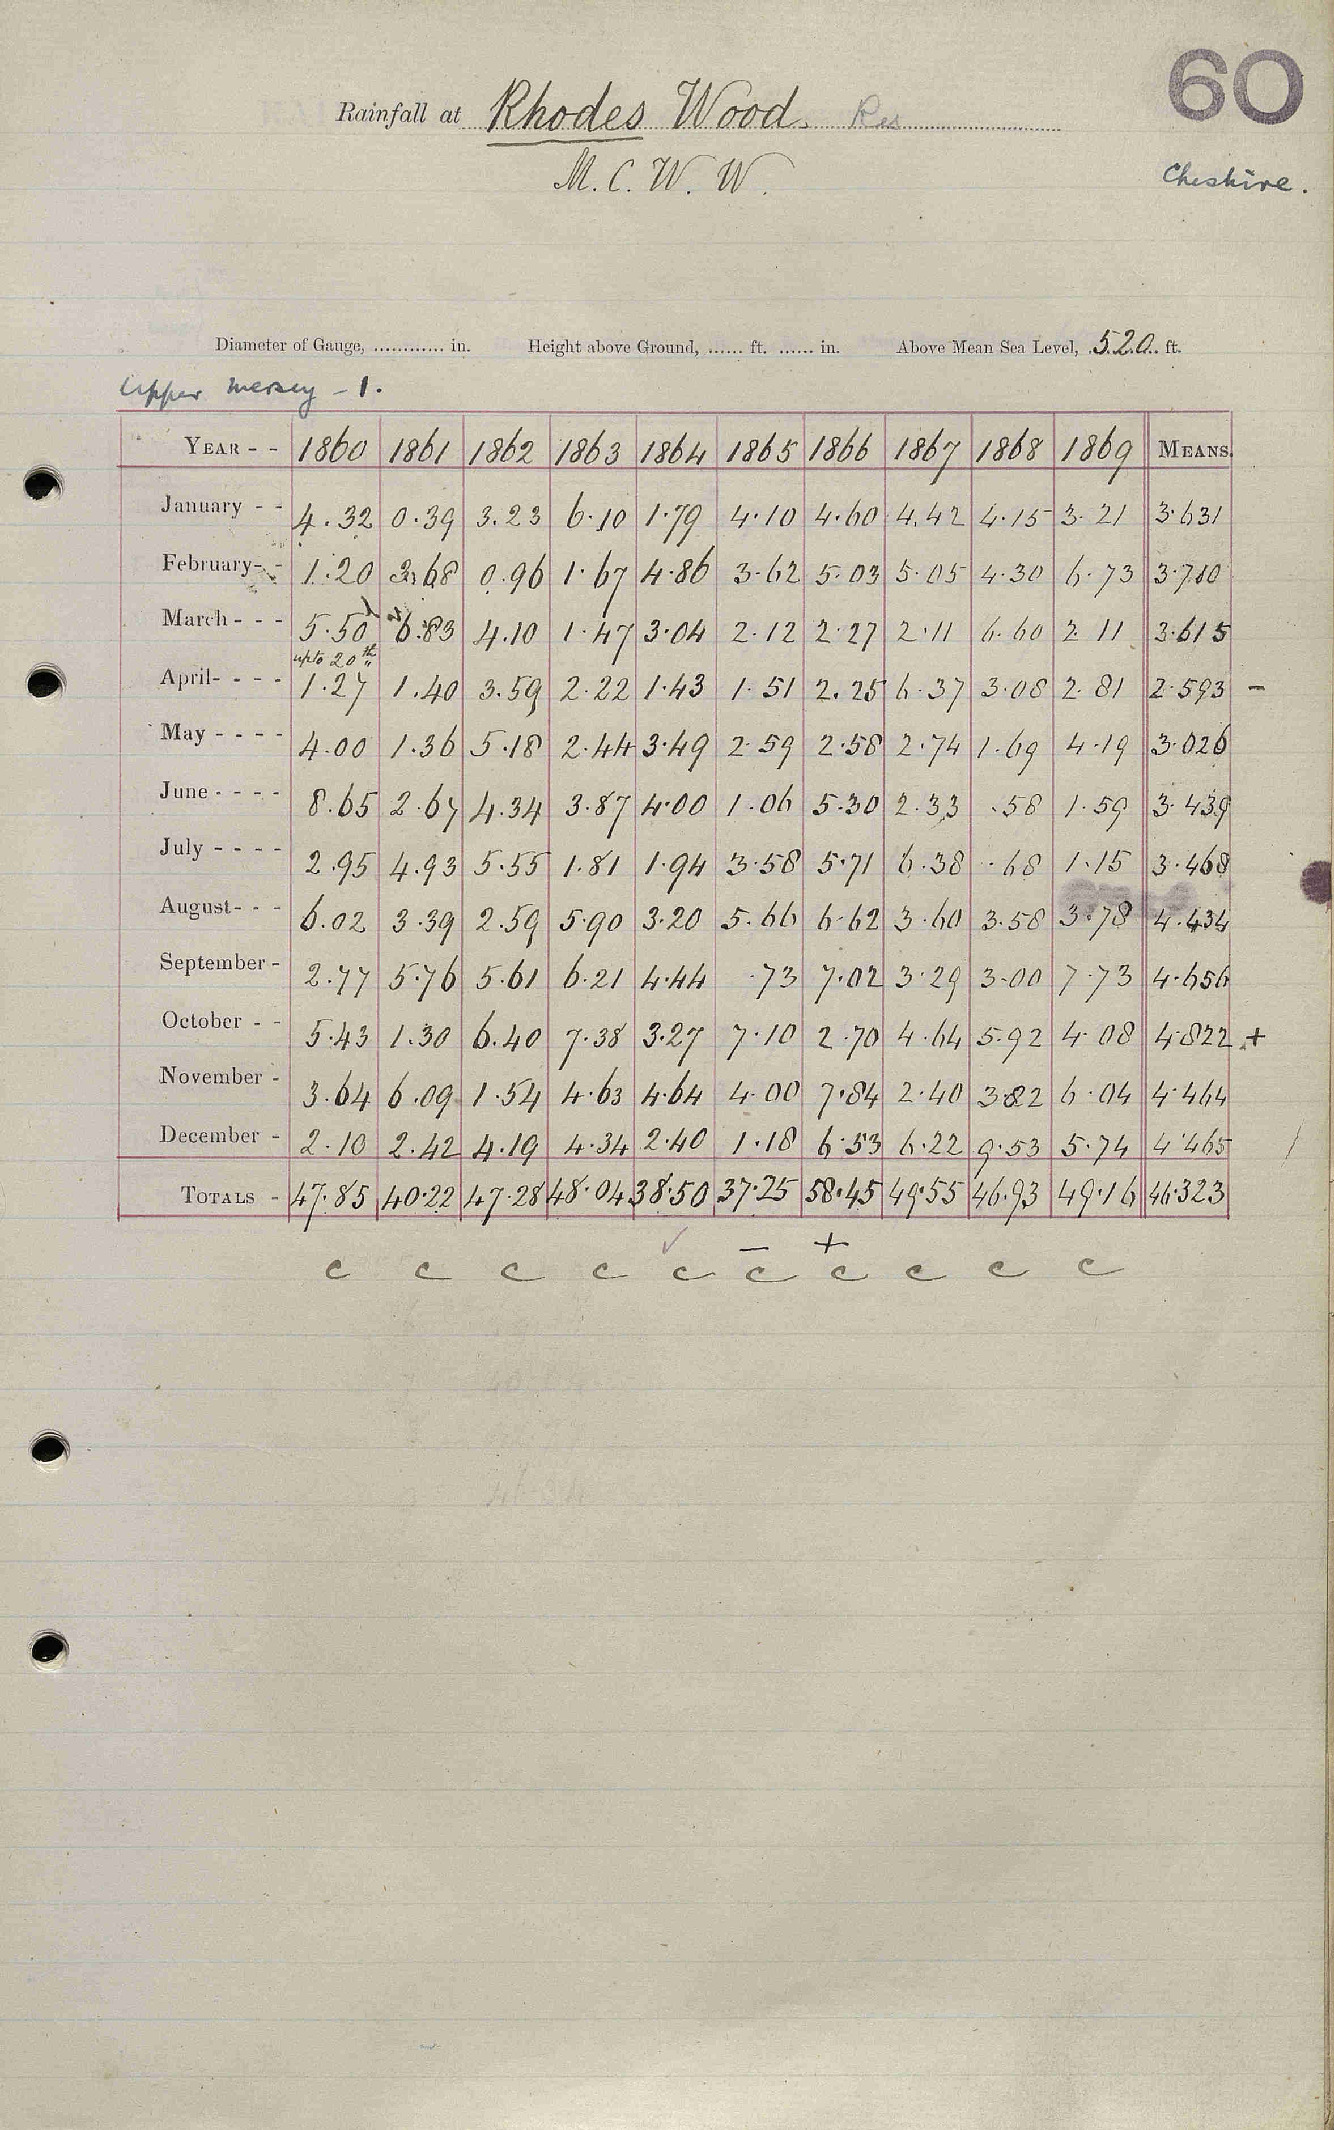 60
Rainfall at Rhodes Wood. Res
M. C. W. W.
Cheshire.
Diameter of Gauge, ............ in. Height above Ground, ...... ft. ...... in. Above Mean Sea Level, 520 ft.
Upper Mersey - 1.
YEAR - - 1860 1861 1862 1863 1864 1865 1866 1867 1868 1869 MEANS.
January - - 4.32 0.39 3.23 6.10 1.79 4.10 4.60 4.42 4.15 3.21 3.631
February - - 1.20 3.68 0.96 1.67 4.86 3.62 5.03 5.05 4.30 6.73 3.710
March - - - 5.50 6.83 4.10 1.47 3.04 2.12 2.27 2.11 6.60 2.11 3.615
upto 20th
April - - - - 1.27 1.40 3.59 2.22 1.43 1.51 2.25 6.37 3.08 2.81 2.593 -
May - - - - 4.00 1.36 5.18 2.44 3.49 2.59 2.58 2.74 1.69 4.19 3.026
June - - - - 8.65 2.67 4.34 3.87 4.00 1.06 5.30 2.33 .58 1.59 3.439
July - - - - 2.95 4.93 5.55 1.81 1.94 3.58 5.71 6.38 .68 1.15 3.468
August - - - 6.02 3.39 2.59 5.90 3.20 5.66 6.62 3.60 3.58 3.78 4.434
September - 2.77 5.76 5.61 6.21 4.44 .73 7.02 3.29 3.00 7.73 4.656
October - - 5.43 1.30 6.40 7.38 3.27 7.10 2.70 4.64 5.92 4.08 4.822 +
November - 3.64 6.09 1.54 4.63 4.64 4.00 7.84 2.40 3.82 6.04 4.464
December - 2.10 2.42 4.19 4.34 2.40 1.18 6.53 6.22 9.53 5.74 4.465
TOTALS - 47.85 40.22 47.28 48.04 38.50 37.25 58.45 49.55 46.93 49.16 46.323
✓ - +
c c c c c c c c c c